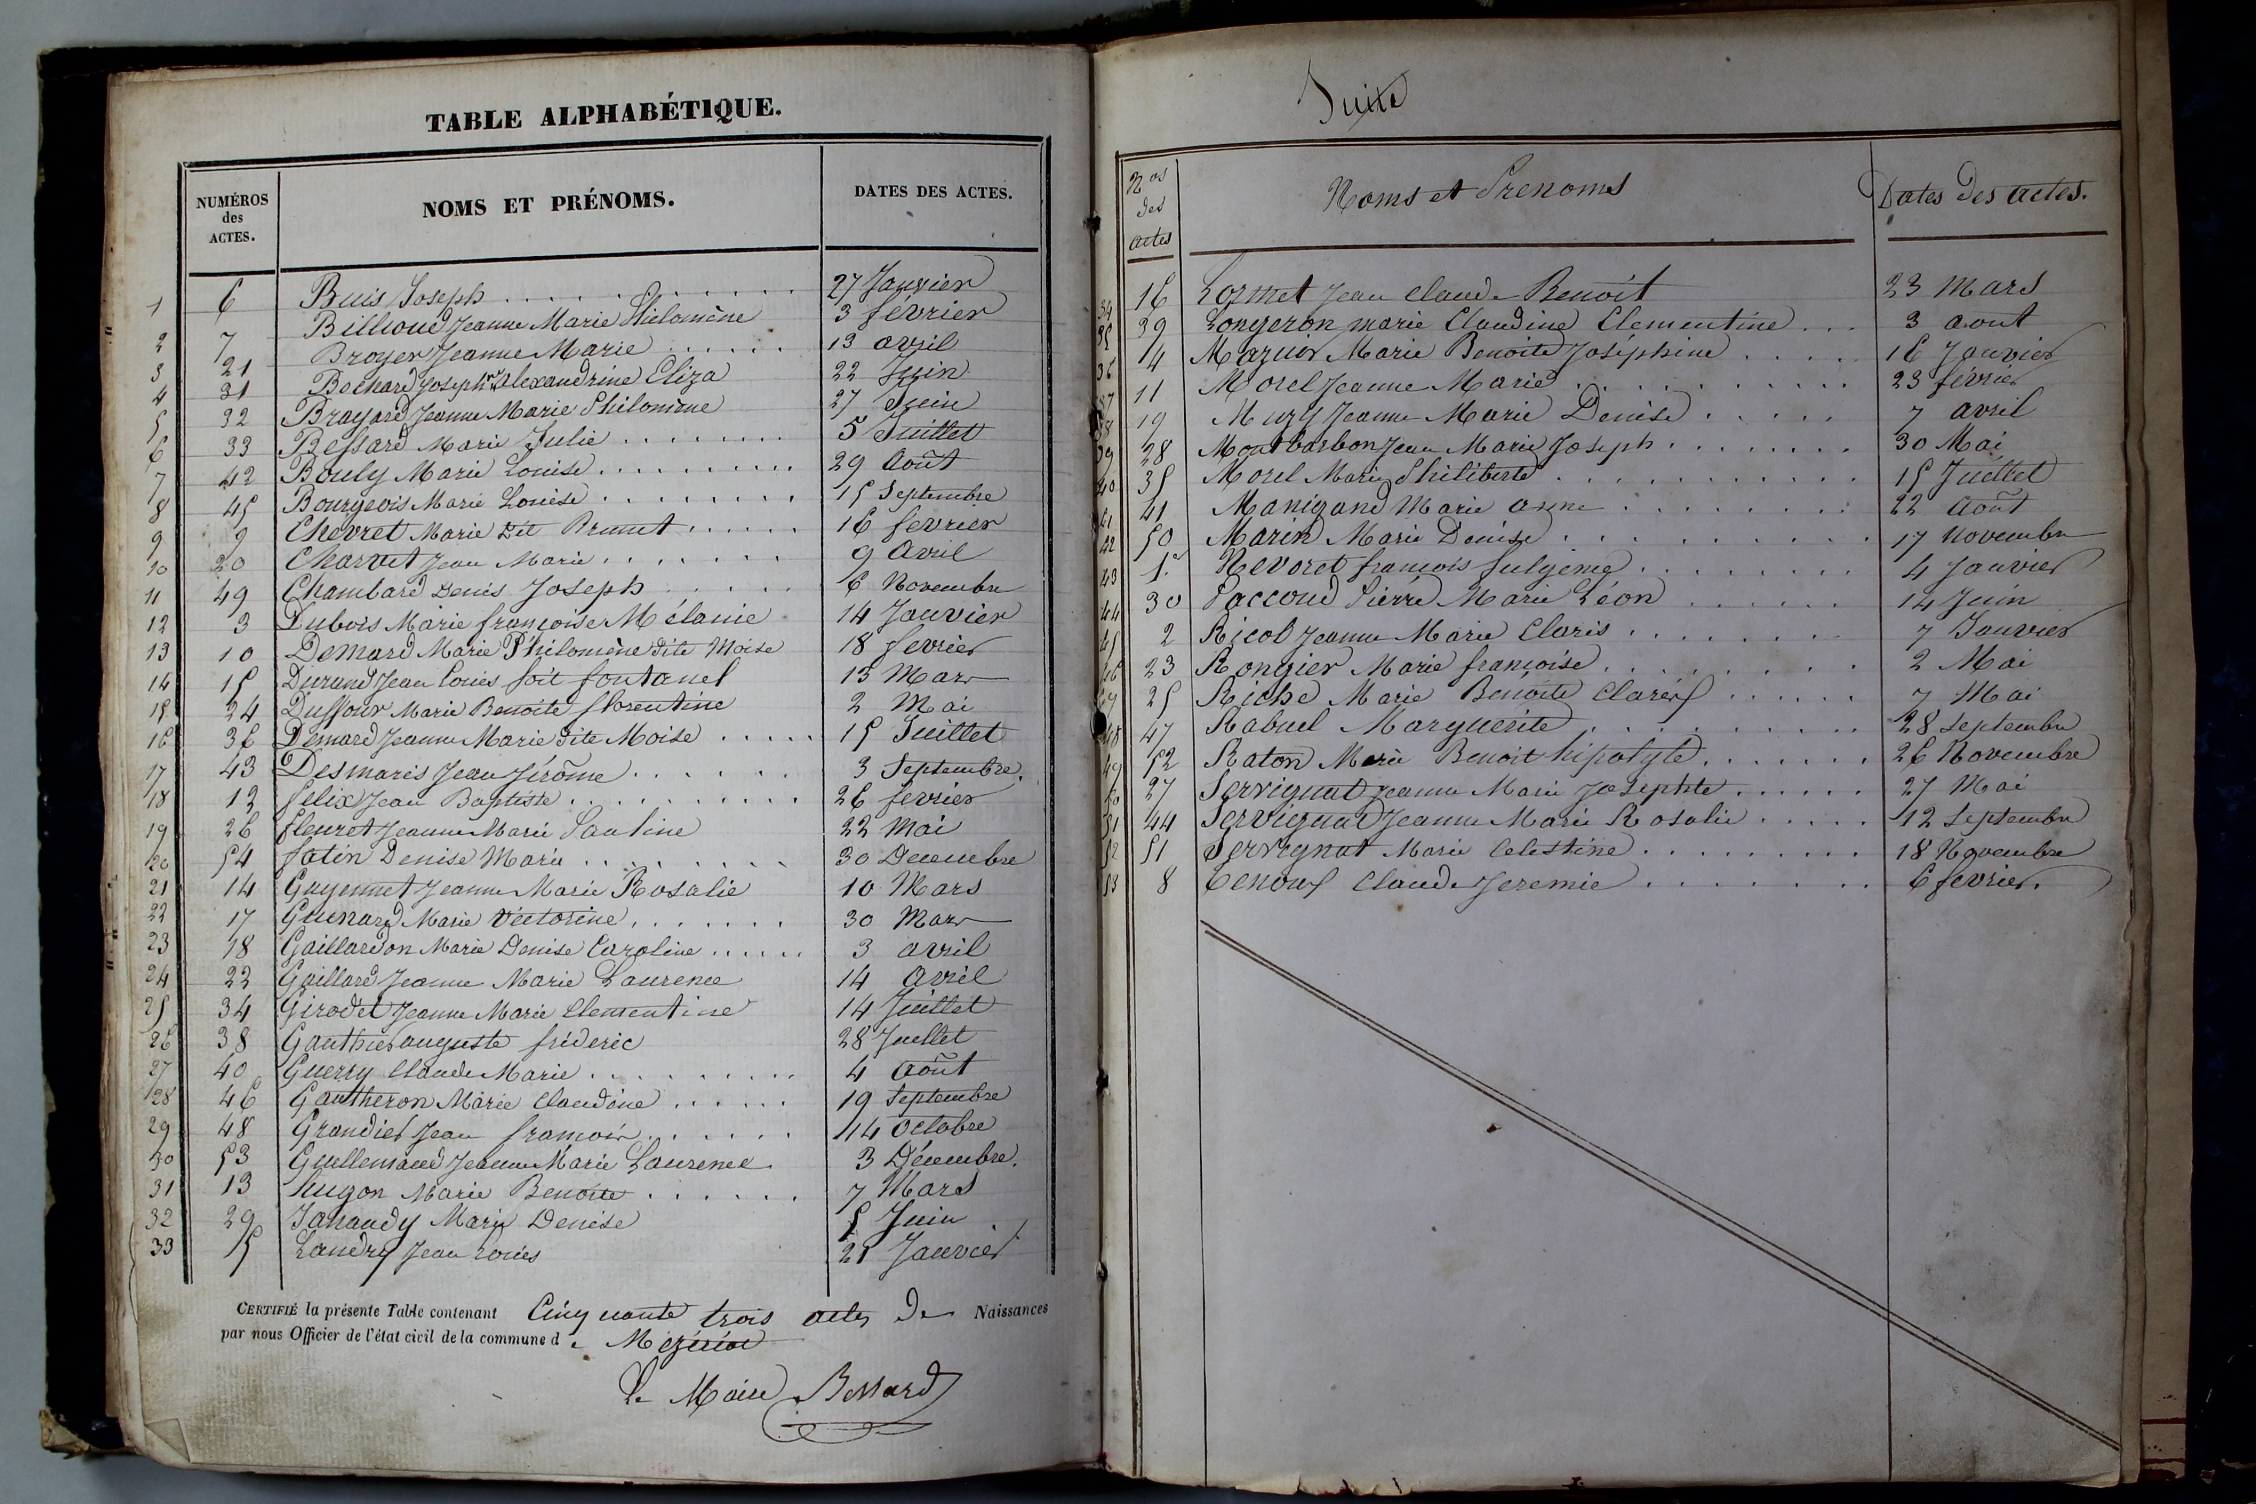 TABLE ALPHABÉTIQUE.
NUMÉROS des ACTES. NOMS ET PRÉNOMS. DATES DES ACTES.
1 6 Buis Joseph 27 Janvier
2 7 Billioud Jeanne Marie Philomène 3 février
3 21 Broyer Jeanne Marie 13 avril
4 31 Bochard Josephte Alexandrine Eliza 22 Juin
5 32 Brayard Jeanne Marie Philomène 27 Juin
6 33 Bessard Marie Julie 5 Juillet
7 42 Bouly Marie Louise 29 Août
8 45 Bourgeois Marie Louise 15 Septembre
9 9 Chevret Marie dit Brunet 16 fevrier
10 20 Charvet Jean Marie 9 Avril
11 49 Chambard Denis Joseph 6 Novembre
12 3 Dubois Marie françoise Mélanie 14 Janvier
13 10 Demard Marie Philomène dite Moise 18 fevrier
14 15 Durand Jean Louis soit fontanel 13 Mars
15 24 Duffour Marie Benoite florentine 2 Mai
16 36 Demard Jeanne Marie dite Moise 15 Juillet
17 43 Desmaris Jean Jérôme 3 Septembre.
18 12 felix Jean Baptiste 26 fevrier
19 26 fleuret Jeanne Marie Pauline 22 Mai
20 54 fatin Denise Marie 30 Decembre
21 14 Guyennet Jeanne Marie Rosalie 10 Mars
22 17 Guenard Marie Victorine 30 Mars
23 18 Gaillardon Marie Denise Caroline 3 avril
24 22 Gaillard Jeanne Marie Laurence 14 Avril
25 34 Girodet Jeanne Marie Clementine 14 Juillet
26 38 Gauthier auguste fréderic 28 Juillet
27 40 Guerry Claude Marie 4 Août
28 46 Gautheron Marie Claudine 19 Septembre
29 48 Grandier Jean françois 14 Octobre
30 53 Guillemaud Jeanne Marie Laurence 3 Décembre.
31 13 hugon Marie Benoite 7 Mars
32 29 Janaudy Marie Denise 5 Juin
33 5 Landry Jean Louis 21 Janvier
CERTIFIÉ la présente Table contenant Cinquante trois actes de Naissances
par nous Officier de l'état civil de la commune d e Mézériat
Le Maire Bessard
Suite
Nos des actes Noms et Prenoms Dates des actes.
34 16 Lormet Jean Claude Benoit 23 Mars
35 39 Longeron marie Claudine Clementine 3 aout
36 4 Mazuir Marie Benoite Joséphine 16 Janvier
37 11 Morel Jeanne Marie 23 février
38 19 Muzy Jeanne Marie Denise 7 avril
39 28 Montbarbon Jean Marie Joseph 30 Mai
40 35 Morel Marie Philiberte 15 Juillet
41 41 Manigand Marie anne 22 Août
42 50 Marin Marie Denise 17 Novembre
43 1er Nevoret francois fulgence 4 Janvier
44 30 Paccoud Pierre Marie Léon 14 Juin
45 2 Ricol Jeanne Marie Claris 7 Janvier
46 23 Rongier Marie françoise 2 Mai
47 25 Riche Marie Benoite 7 Mai
48 47 Rabuel Marguerite 28 Septembre
49 52 Raton Marie Benoit hipolyte 26 Novembre
50 27 Servignat Jeanne Marie Josephte 27 Mai
51 44 Servignat Jeanne Marie Rosalie 12 Septembre
52 51 Servignat Marie Celestine 18 Novembre
53 8 Tenouf Claude Jeremie 6 fevrier.